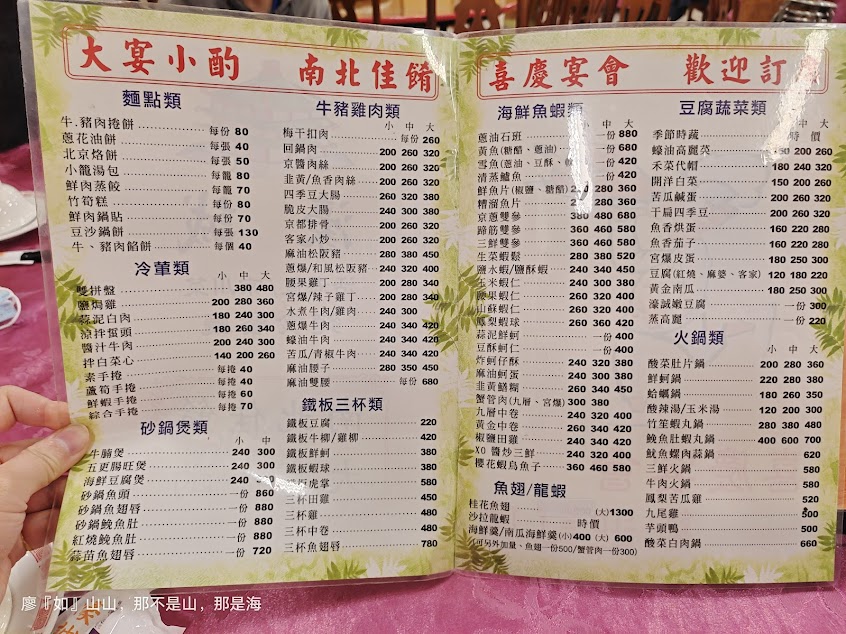 大宴小酌 南北佳餚
麵點類
牛.豬肉捲餅 每份 80
蔥花油餅 每張 40
北京烙餅 每張 50
小籠湯包 每籠 80
鮮肉蒸餃 每籠 70
竹筍糕 每份 80
鮮肉鍋貼 每份 70
豆沙鍋餅 每張 130
牛、豬肉餡餅 每個 40
冷葷類
小 中 大
雙拼盤 380 480
鹽焗雞 200 280 360
蒜泥白肉 180 240 300
涼拌蜇頭 180 260 340
醬汁牛肉 200 240 300
拌白菜心 140 200 260
素手捲 每捲 40
蘆筍手捲 每捲 40
鮮蝦手捲 每捲 60
綜合手捲 每捲 70
砂鍋煲類
小 中
牛腩煲 240 300
五更腸旺煲 240 300
海鮮豆腐煲 240 300
砂鍋魚頭 一份 860
砂鍋魚翅唇 一份 880
砂鍋鮸魚肚 一份 880
紅燒鮸魚肚 一份 880
蒜苗魚翅唇 一份 720
牛豬雞肉類
小 中 大
梅干扣肉 每份 260
回鍋肉 200 260 320
京醬肉絲 200 260 320
韭黃/魚香肉絲 200 260 320
四季豆大腸 260 320 380
脆皮大腸 240 300 380
京都排骨 200 260 320
客家小炒 200 260 320
麻油松阪豬 280 380 450
蔥爆/和風松阪豬 240 320 400
腰果雞丁 200 280 340
宮爆/辣子雞丁 200 280 340
水煮牛肉/雞肉 240 300
蔥爆牛肉 240 340 420
蠔油牛肉 240 340 420
苦瓜/青椒牛肉 240 340 420
麻油腰子 280 350 450
麻油雙腰 每份 680
鐵板三杯類
鐵板豆腐 220
鐵板牛柳/雞柳 420
鐵板鮮蚵 380
鐵板蝦球 380
鐵板虎掌 580
三杯田雞 450
三杯雞 480
三杯中卷 480
三杯魚翅唇 780
喜慶宴會 歡迎訂
海鮮魚蝦類
小 中 大
蔥油石班 一份 880
黃魚(糖醋、蔥油) 一份 680
雪魚(蔥油、豆酥、 一份 420
清蒸鱸魚 一份 420
鮮魚片(椒鹽、糖醋) 280 360
糟溜魚片 280 360
京蔥雙參 380 480 680
蹄筋雙參 360 460 580
三鮮雙參 360 460 580
生菜蝦鬆 280 380 520
鹽水蝦/鹽酥蝦 240 340 450
玉米蝦仁 240 300 380
腰果蝦仁 260 320 400
山蘇蝦仁 260 320 400
鳳梨蝦球 260 360 420
蒜泥鮮蚵 一份 400
豆酥蚵仁 一份 400
炸蚵仔酥 240 320 380
麻油蚵蛋 240 300 380
韭黃鱔糊 260 340 450
蟹管肉(九層、宮爆) 300 380
九層中卷 240 320 400
黃金中卷 260 340 420
椒鹽田雞 240 340 420
XO 醬炒三鮮 240 320 400
櫻花蝦烏魚子 360 460 580
魚翅/龍蝦
桂花魚翅 (大)1300
沙拉龍蝦 時價
海鮮羹/南瓜海鮮羹 (小)400 (大) 600
(可另外加量、魚翅一份500/蟹管肉一份300)
豆腐蔬菜類
小 中 大
季節時蔬 時 價
蠔油高麗菜 150 200 260
禾菜代帽 180 240 320
開洋白菜 150 200 260
苦瓜鹹蛋 200 260 320
干扁四季豆 200 260 320
魚香烘蛋 160 220 280
魚香茄子 160 220 280
宮爆皮蛋 180 250 300
豆腐(紅燒、麻婆、客家) 120 180 220
黃金南瓜 180 250 300
濠誠嫩豆腐 一份 300
蒸高麗 一份 220
火鍋類
小 中 大
酸菜肚片鍋 200 280 360
鮮蚵鍋 220 280 380
蛤蠣鍋 180 260 350
酸辣湯/玉米湯 120 200 300
竹笙蝦丸鍋 280 380 480
鮸魚肚蝦丸鍋 400 600 700
魷魚螺肉蒜鍋 620
三鮮火鍋 580
牛肉火鍋 580
鳳梨苦瓜雞 520
九尾雞 500
芋頭鴨 500
酸菜白肉鍋 660
廖『如』山山，那不是山，那是海